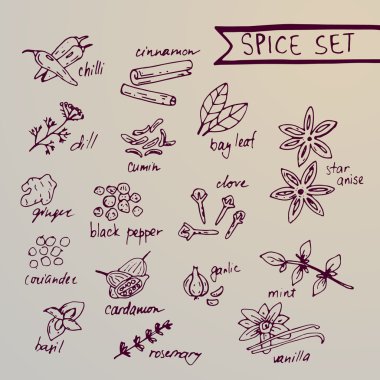 SPICE SET
chilli
cinnamon
dill
cumin
bay leaf
star
anise
ginger
black pepper
clove
coriander
cardamon
garlic
mint
basil
rosemary
vanilla